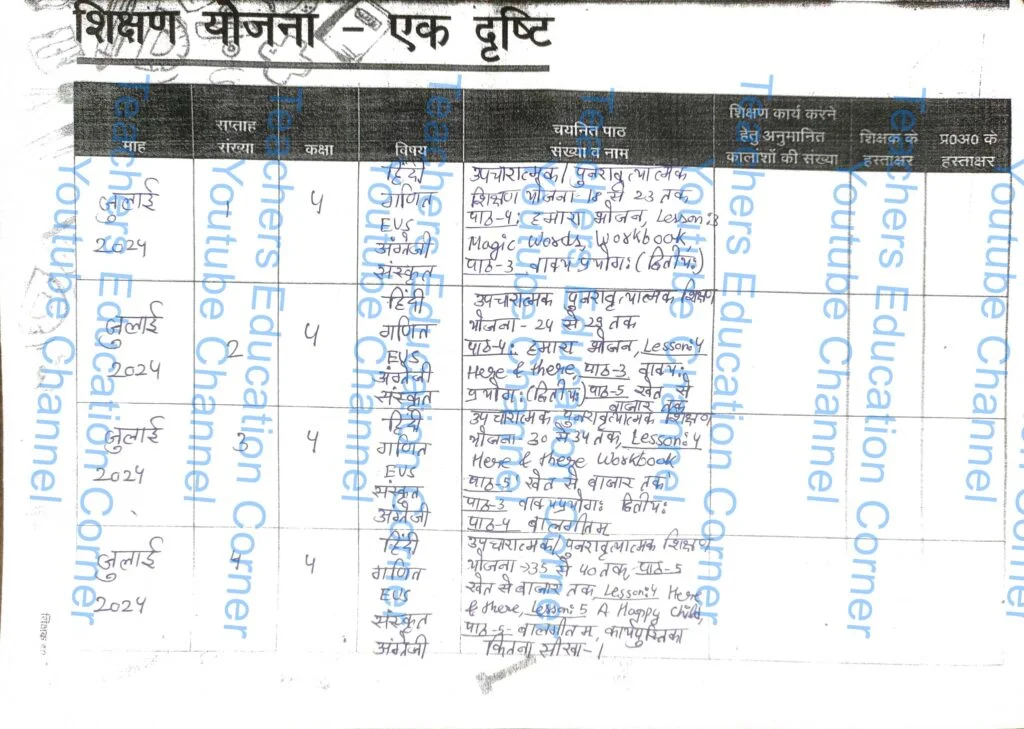 शिक्षण योजना - एक दृष्टि
माह
सप्ताह
संख्या
कक्षा
विषय
चयनित पाठ
संख्या व नाम
शिक्षण कार्य करने
हेतु अनुमानित
कालांशों की संख्या
शिक्षक के
हस्ताक्षर
प्र0अ0 के
हस्ताक्षर
जुलाई
2024
1
4
हिंदी
गणित
EVS
अंग्रेजी
संस्कृत
उपचारात्मक/ पुनरावृत्यात्मक
शिक्षण योजना- 18 से 23 तक
पाठ-4: हमारा भोजन, Lesson:3
Magic Words, Workbook,
पाठ-3 वाक्य प्रयोग: (द्वितीय:)
जुलाई
2024
2
4
हिंदी
गणित
EVS
अंग्रेजी
संस्कृत
उपचारात्मक पुनरावृत्यात्मक शिक्षण
योजना- 24 से 29 तक
पाठ-4: हमारा भोजन, Lesson:4
Here & there, पाठ-3 वाक्य:
प्रयोग: (द्वितीय:) पाठ-5 खेत से
बाजार तक
जुलाई
2024
3
4
हिंदी
गणित
EVS
संस्कृत
अंग्रेजी
उपचारात्मक पुनरावृत्यात्मक शिक्षण
योजना- 30 से 34 तक, Lesson:4
Here & there Workbook
पाठ-5 खेत से बाजार तक
पाठ-3 वाक्यप्रयोग: द्वितीय:
पाठ-4 बालगीतम्
जुलाई
2024
4
4
हिंदी
गणित
EVS
संस्कृत
अंग्रेजी
उपचारात्मक/ पुनरावृत्यात्मक शिक्षण
योजना→35 से 40 तक, पाठ-5
खेत से बाजार तक, Lesson:4 Here
& there, Lesson:5 A Happy Child,
पाठ-5- बालगीतम, कार्यपुस्तिका
कितना सीखा-1
Teachers Education Corner
Youtube Channel
Teachers Education Corner
Youtube Channel
Teachers Education Corner
Youtube Channel
Teachers Education Corner
Youtube Channel
Teachers Education Corner
Youtube Channel
Teachers Education Corner
Youtube Channel